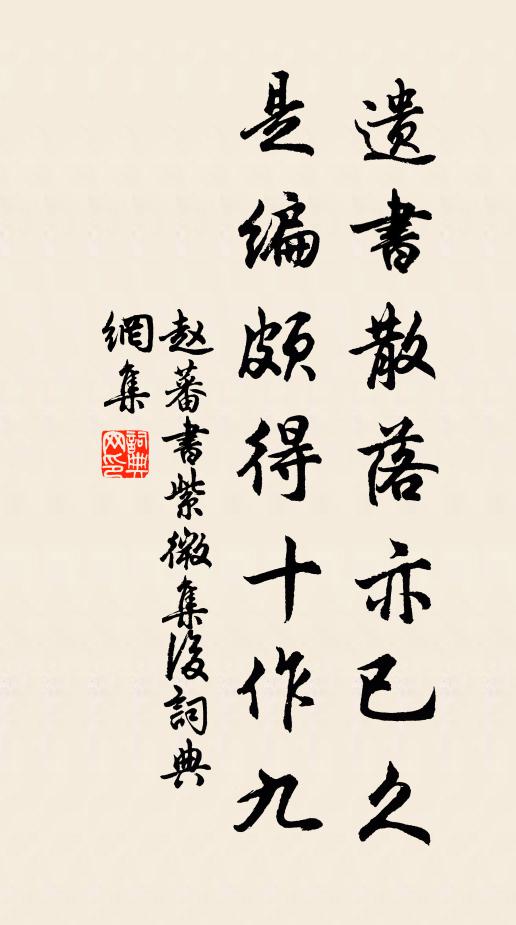 遺書散落亦已久
是編頗得十作九
赵蕃書紫微集後詞典
網集
詞典网印